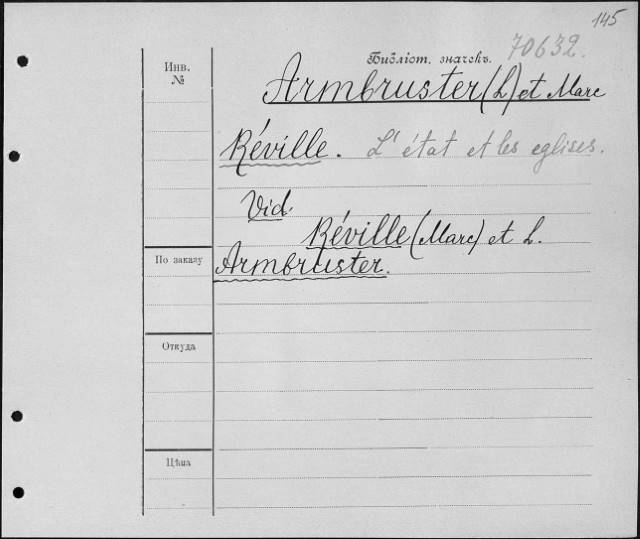 145
70632.
Инв.
№
Библіот. значекъ.
Armbruster (L) et Marc
Réville. L'état et les eglises.
Vid.
Réville (Marc) et L.
Armbruster.
По заказу
Откуда
Цѣна